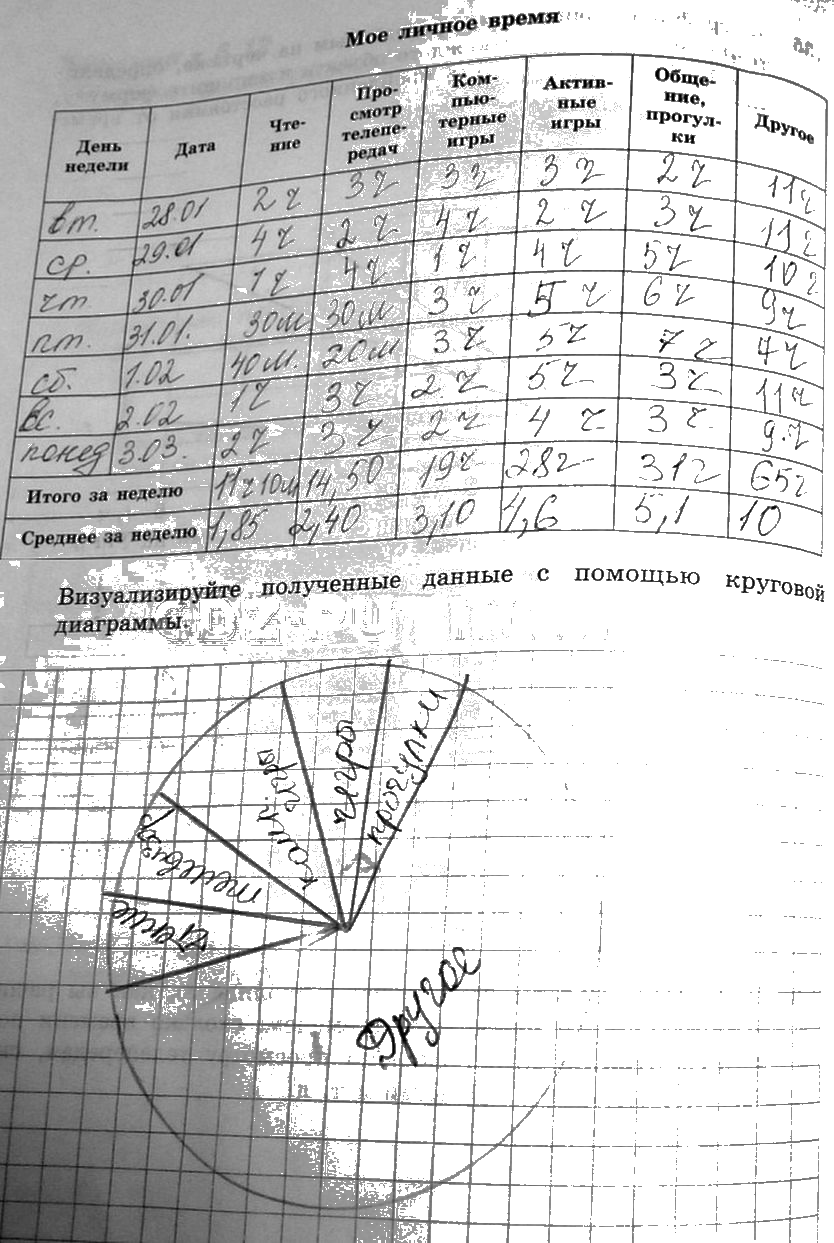 Мое личное время
День недели Дата Чте-ние Про-смотр телепе-редач Ком-пью-терные игры Актив-ные игры Обще-ние, прогул-ки Другое
вт. 28.01 2 ч 3 ч 3 ч 3 ч 2 ч 11 ч
ср. 29.01 4 ч 2 ч 4 ч 2 ч 3 ч 11 ч
чт. 30.01 1 ч 4 ч 1 ч 4 ч 5 ч 10 ч
пт. 31.01. 30 м 30 м 3 ч 5 ч 6 ч 9 ч
сб. 1.02 40 м. 20 м 3 ч 5 ч 7 ч 4 ч
вс. 2.02 1 ч 3 ч 2 ч 5 ч 3 ч 11 ч
понед 3.03. 2 ч 3 ч 2 ч 4 ч 3 ч. 9 ч
Итого за неделю 11 ч 10 м 14,50 19 ч 28 ч 31 ч 65 ч
Среднее за неделю 1,85 2,40 3,10 4,6 5,1 10
Визуализируйте полученные данные с помощью круговой
диаграммы.
чтение
телевизор
комп. игры
игры
прогулки
Другое